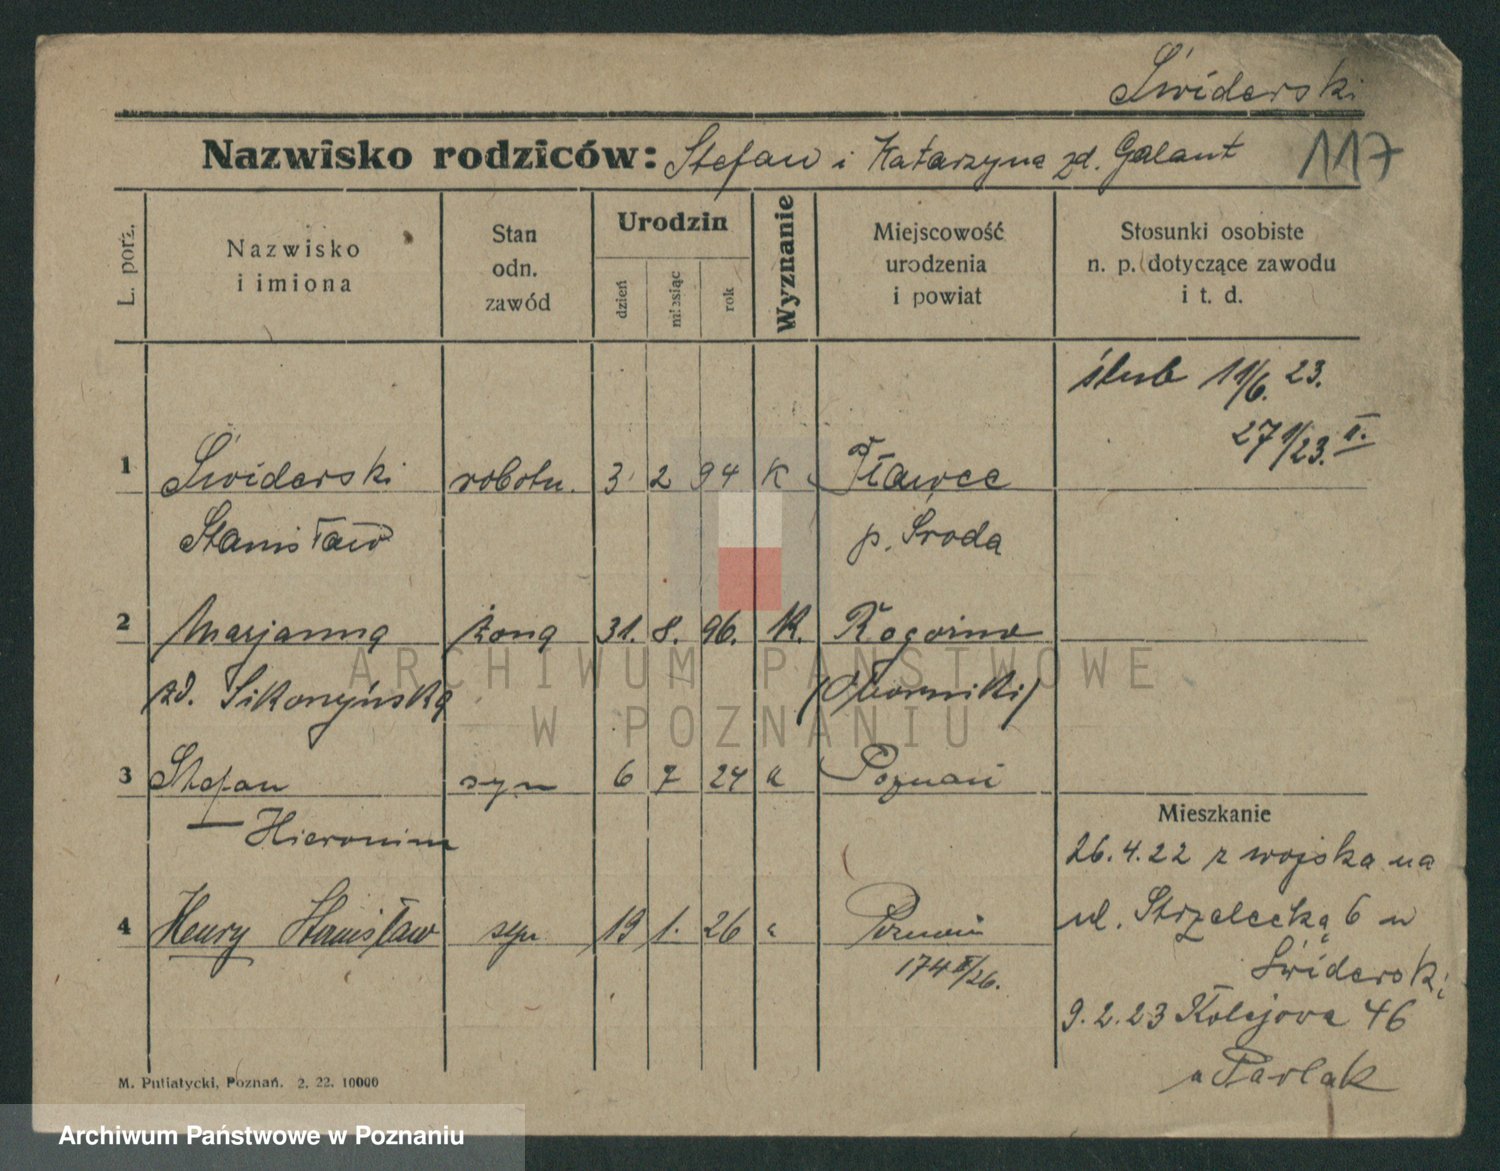 Świderski
Nazwisko rodziców: Stefan i Katarzyna zd. Galant
117
L. porz.
Nazwisko
i imiona
Stan
odn.
zawód
Urodzin
dzień
miesiąc
rok
Wyznanie
Miejscowość
urodzenia
i powiat
Stosunki osobiste
n. p. dotyczące zawodu
i t. d.
ślub 11/6. 23.
27 1/23. II.
1 Świderski robotn. 3 2 94 K Tławce
Stanisław p. Środa
2 Marjanna żona 31. 8. 96. K. Rogoźno
zd. Sikorzyńska (Oborniki)
3 Stefan syn 6 7 24 k Poznań
— Hieronim
Mieszkanie
26.4.22 z wojska na
ul. Strzelecką 6 u
Świderski
4 Henry Stanisław syn 19 1. 26 " Poznań
174 II/26.
9.2.23 Kolejowa 46
u Pawlak
M. Putiatycki, Poznań. 2. 22. 10000
ARCHIWUM PAŃSTWOWE
W POZNANIU
Archiwum Państwowe w Poznaniu